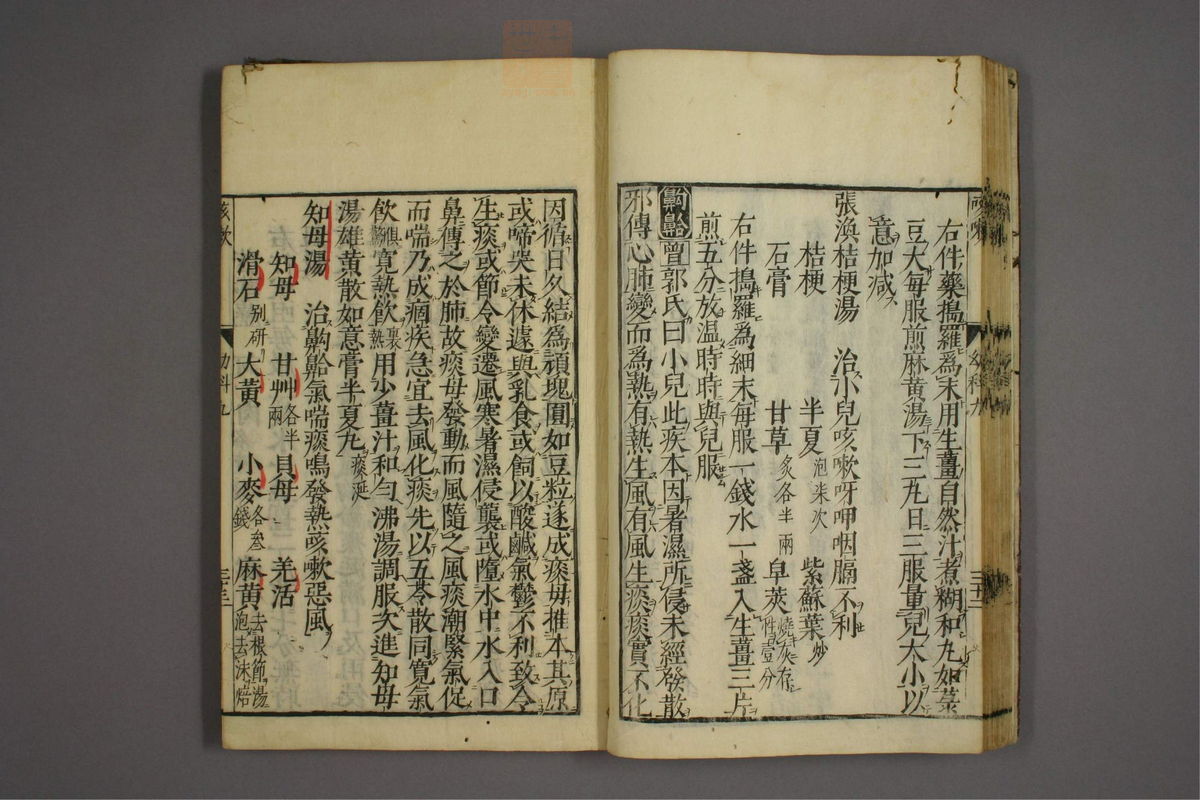 右件藥搗羅爲末用生薑自然汁煮糊和丸如菉
豆大每服煎麻黃湯下三丸日三服量兒大小以
意加減
張渙桔梗湯 治小兒咳嗽呀呷咽膈不利
桔梗 半夏泡柒次 紫蘇葉炒
石膏 甘草炙各半兩 皁莢燒灰存性壹分
右件搗羅爲細末每服一錢水一盞入生薑三片
煎五分放温時時與兒服
齁䶎 曾郭氏曰小兒此疾本因暑濕所侵未經發散
邪傳心肺變而爲熱有熱生風有風生痰痰實不化
因循日久結爲頑塊圓如豆粒遂成痰母推本其原
或啼哭未休遽與乳食或飼以酸鹹氣鬱不利致令
生痰或節令變遷風寒暑濕侵襲或墮水中水入口
鼻傳之於肺故痰母發動而風隨之風痰潮緊氣促
而喘乃成痼疾急宜去風化痰先以五苓散同寬氣
飲寬熱飲用少薑汁和勻沸湯調服次進知母
湯雄黃散如意膏半夏丸痰涎
知母湯 治齁䶎氣喘痰鳴發熱咳嗽惡風
知母 甘艸各半兩 貝母 羌活
滑石别研 大黃 小麥各叁錢 麻黃去根節湯泡去沫焙
咳嗽
幼科九